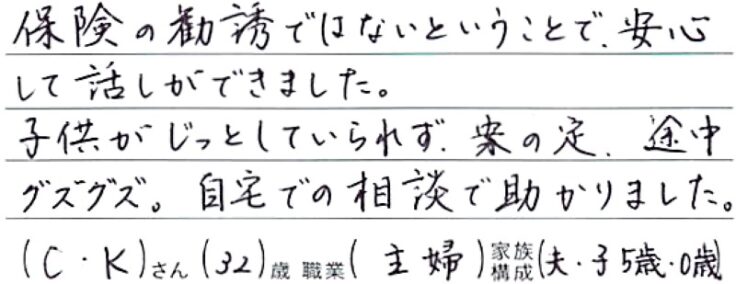 保険の勧誘ではないということで、安心
して話しができました。
子供がじっとしていられず、案の定、途中
グズグズ。自宅での相談で助かりました。
(C・K)さん(32)歳 職業(主婦)家族構成(夫・子5歳・0歳)